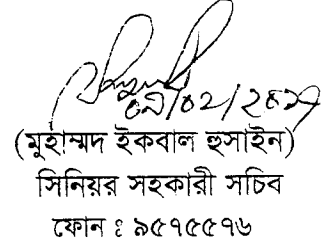 ০৯/০২/২০১৭
(মুহাম্মদ ইকবাল হুসাইন)
সিনিয়র সহকারী সচিব
ফোন ঃ ৯৫৭৫৫৭৬